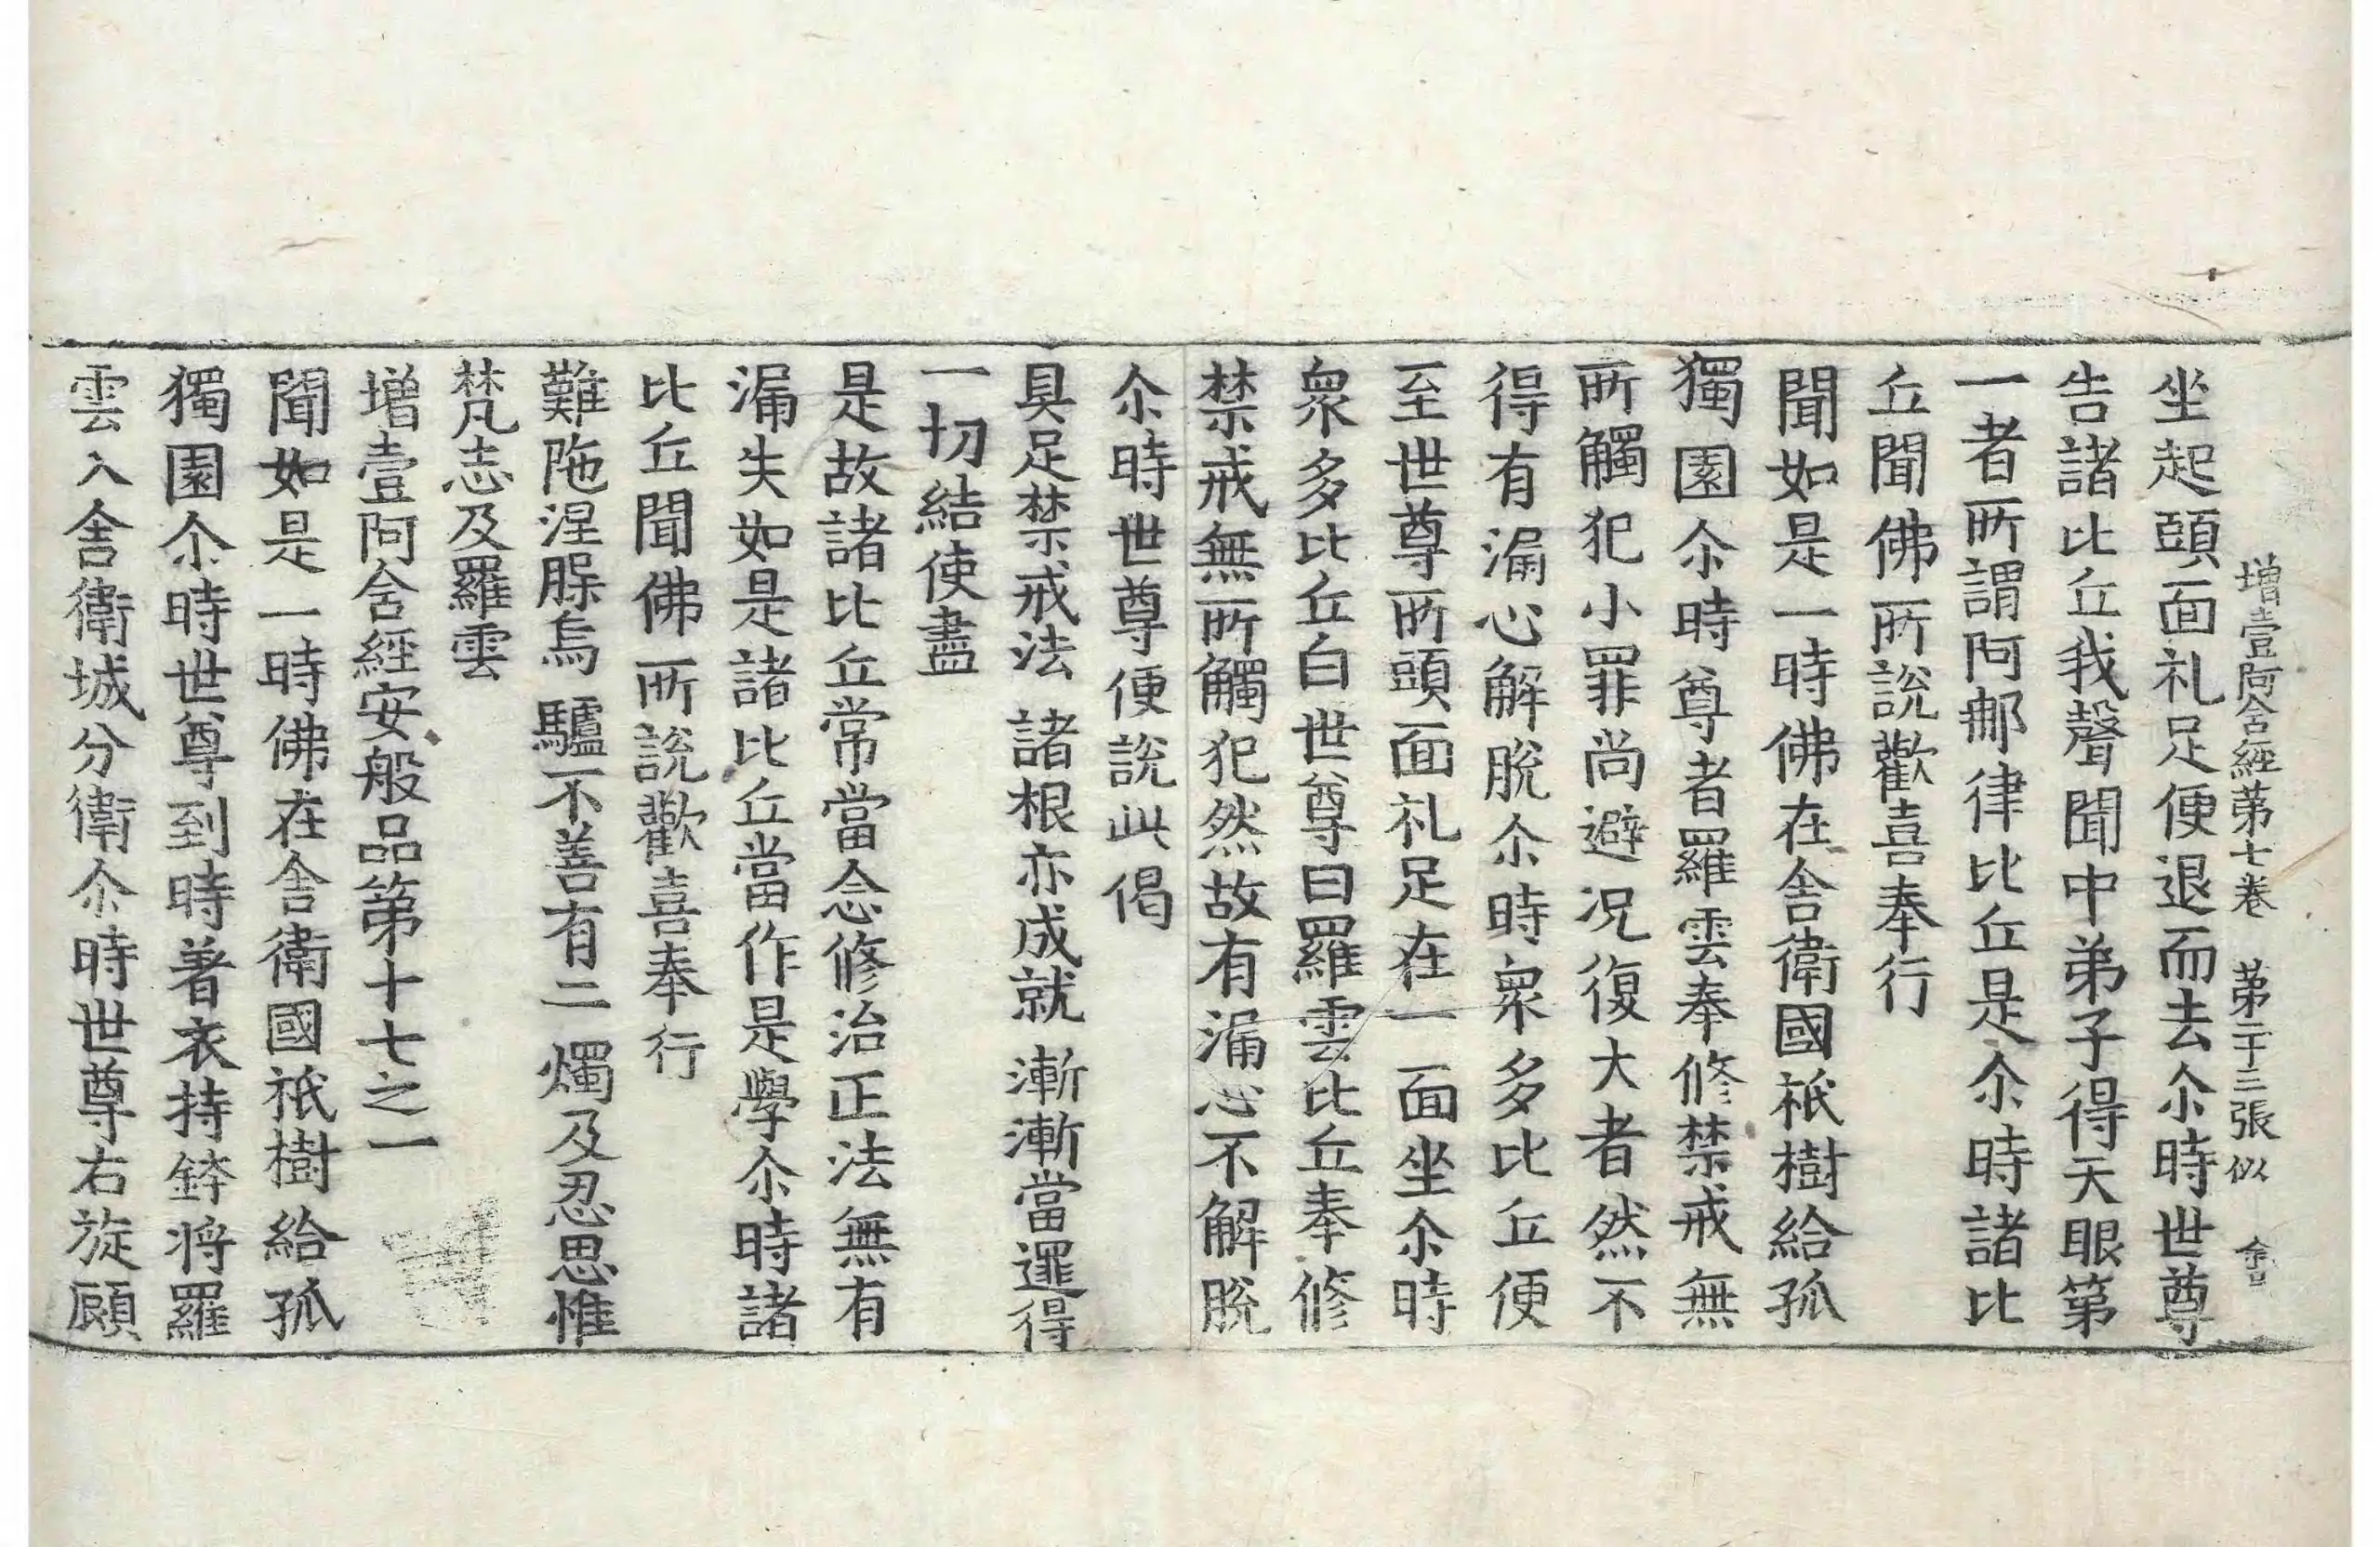 增壹阿含經第七卷 第二十三張 似 金
坐起頭面礼足便退而去尒時世尊
告諸比丘我聲聞中弟子得天眼第
一者所謂阿那律比丘是尒時諸比
丘聞佛所說歡喜奉行
聞如是一時佛在舍衛國祇樹給孤
獨園尒時尊者羅雲奉修禁戒無
所觸犯小罪尚避况復大者然不
得有漏心解脫尒時衆多比丘便
至世尊所頭面礼足在一面坐尒時
衆多比丘白世尊曰羅雲比丘奉修
禁戒無所觸犯然故有漏心不解脫
尒時世尊便說此偈
具足禁戒法 諸根亦成就 漸漸當逮得
一切結使盡
是故諸比丘常當念修治正法無有
漏失如是諸比丘當作是學尒時諸
比丘聞佛所說歡喜奉行
難陁涅槃烏 驢不善有二 燭及忍思惟
梵志及羅雲
增壹阿含經安般品第十七之一
聞如是一時佛在舍衛國祇樹給孤
獨園尒時世尊到時著衣持鉢將羅
雲入舍衛城分衛尒時世尊右旋顧